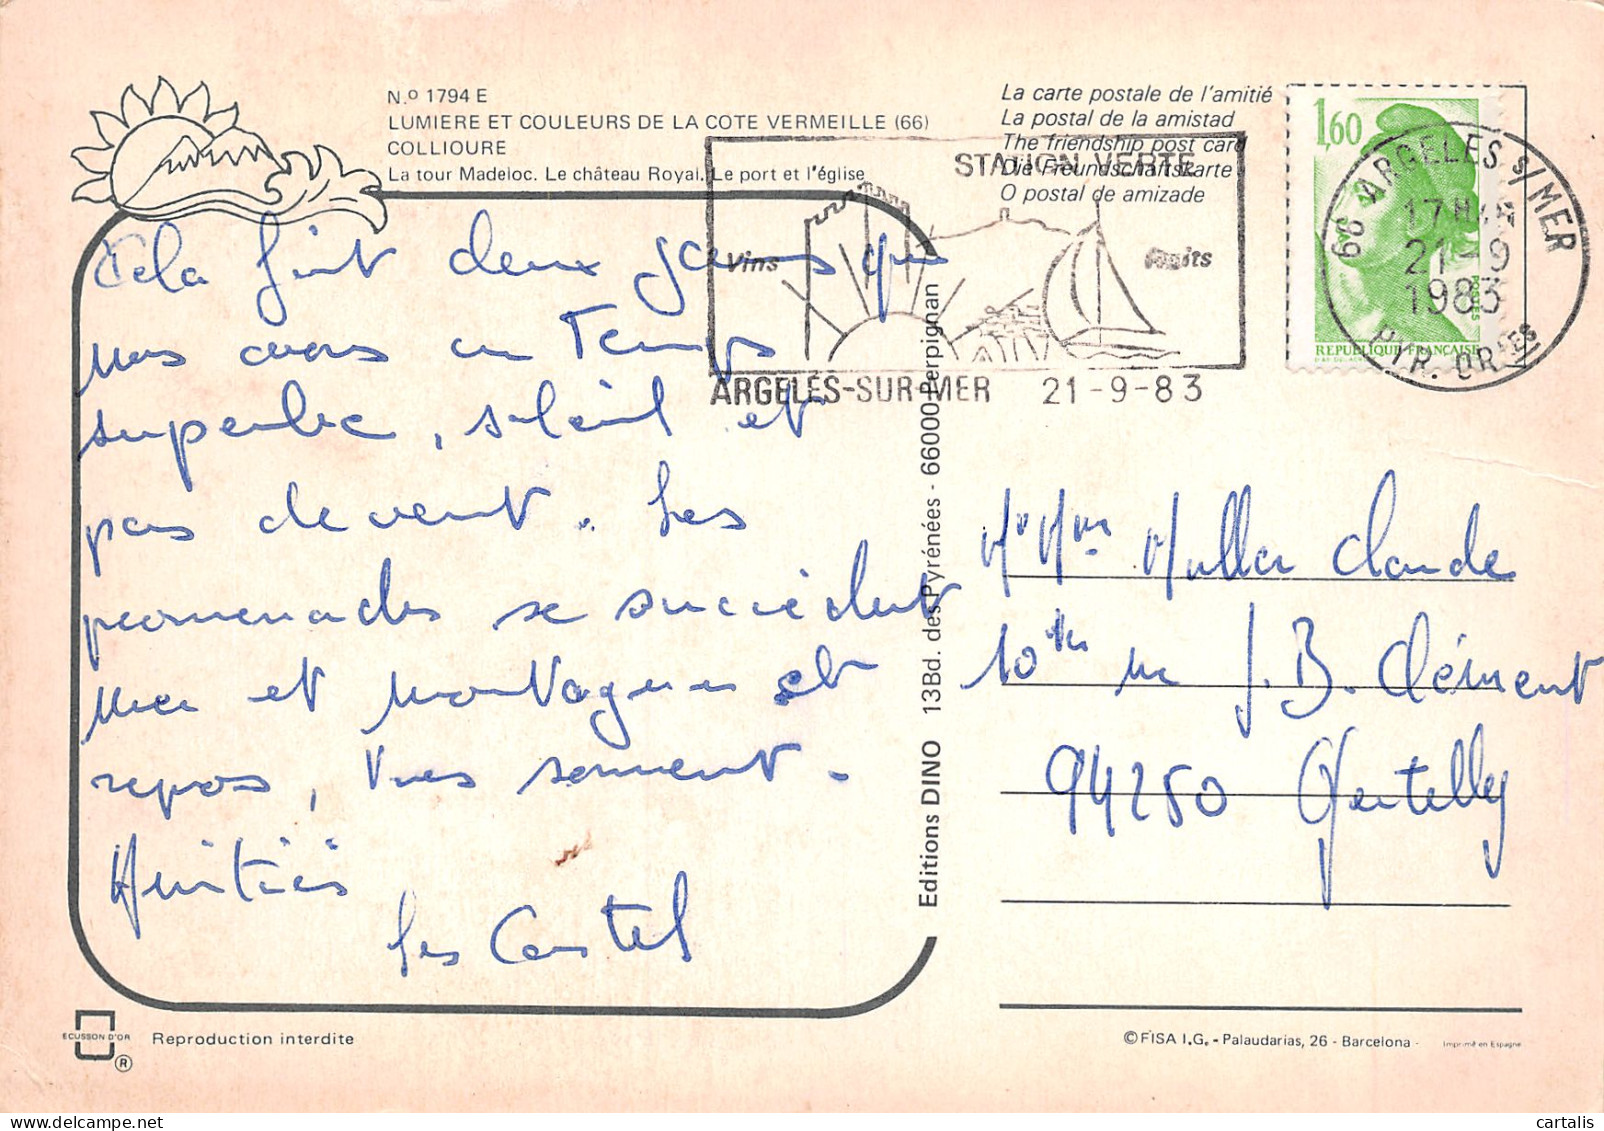 N.º 1794 E
LUMIERE ET COULEURS DE LA COTE VERMEILLE (66)
COLLIOURE
La tour Madeloc. Le château Royal. Le port et l'église
La carte postale de l'amitié
La postal de la amistad
The friendship post card
Die Freundschaftskarte
O postal de amizade
STATION VERTE
Vins
Fruits
ARGELÈS-SUR-MER 21-9-83
1,60
POSTES
REPUBLIQUE FRANÇAISE
66 ARGELES S/MER
17H
21-9
1983
PYR. ORles
Cela fait deux jours que
nous avons un Temps
superbe, soleil et
pas de vent. Les
promenades se succèdent
mer et montagnes et
repos,
Amitiés
Les Castel
Editions DINO 13Bd. des Pyrénées - 66000 Perpignan
Mr Mme Muller Claude
10 J. B. Clément
94250 Gentilly
ECUSSON D'OR
®
Reproduction interdite
© FISA I.G. - Palaudarias, 26 - Barcelona -
Imprimé en Espagne
cartalis